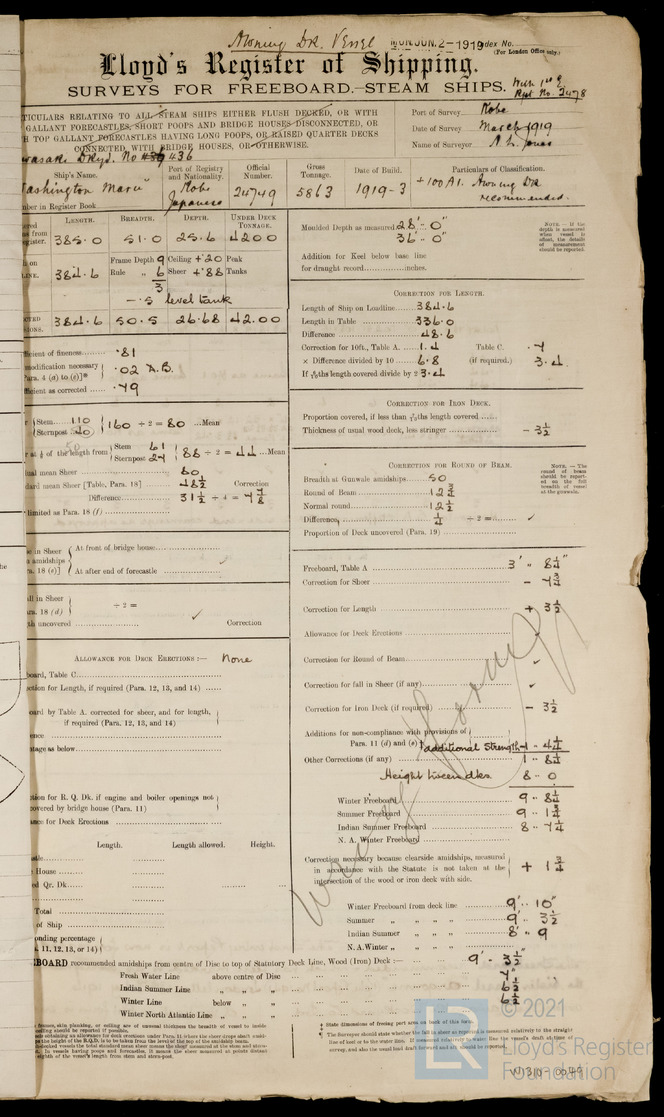 Awning Dk. Vessel
MON. JUN. 2 - 1919
Index No.
(For London Office only.)
Lloyd's Register of Shipping.
SURVEYS FOR FREEBOARD.—STEAM SHIPS.
With 1st E
Rpt No. 2478
TICULARS RELATING TO ALL STEAM SHIPS EITHER FLUSH DECKED, OR WITH
GALLANT FORECASTLES, SHORT POOPS AND BRIDGE HOUSES DISCONNECTED, OR
H TOP GALLANT FORECASTLES HAVING LONG POOPS, OR RAISED QUARTER DECKS
CONNECTED WITH BRIDGE HOUSES, OR OTHERWISE.
Port of Survey Kobe
Date of Survey March 1919
Name of Surveyor A. L. Jones
wasaki Dkyd. No 436
Ship's Name.
Port of Registry
and Nationality.
Official
Number.
Gross
Tonnage.
Date of Build.
Particulars of Classification.
ashington Maru"
Kobe
Japanese
24749
5863
1919-3
+100A1. Awning Dk
recommended.
mber in Register Book
LENGTH.
BREADTH.
DEPTH.
UNDER DECK
TONNAGE.
385.0
51.0
25.6
4200
384.6
Frame Depth 9
Rule „ 6
3
Ceiling + .20
Sheer + .88
Peak
Tanks
- .5 level tank
384.6
50.5
26.68
4200
cient of fineness...... .81
modification necessary
Para. 4 (a) to (e)]* .02 A.B.
ficient as corrected ...... .79
Stem...... 110
Sternpost 50
160 ÷ 2 = 80 ...Mean
of the length from
Stem 61
Sternpost 27
88 ÷ 2 = 44 ...Mean
nal mean Sheer 80
dard mean Sheer [Table, Para. 18] 48½
Correction
Difference 31½ ÷ 4 = 7⅞
limited as Para. 18 (f)
At front of bridge house
At after end of forecastle
÷ 2 =
Correction
ALLOWANCE FOR DECK ERECTIONS :— None
board, Table C
ection for Length, if required (Para. 12, 13, and 14)
oard by Table A. corrected for sheer, and for length,
if required (Para. 12, 13, and 14)
ence
tage as below
tion for R. Q. Dk. if engine and boiler openings not
covered by bridge house (Para. 11)
ance for Deck Erections
Length.
Length allowed.
Height.
House
ed Qr. Dk.
Total
of Ship
onding percentage
11, 12, 13, or 14)
Moulded Depth as measured 28'-0"
36'-0"
Addition for Keel below base line
for draught record..............inches.
NOTE. — If the
depth is measured
when vessel is
afloat, the details
of measurement
should be reported.
CORRECTION FOR LENGTH.
Length of Ship on Loadline 384.6
Length in Table 336.0
Difference 48.6
Correction for 10ft., Table A. 1.4
Table C. .7
× Difference divided by 10 6.8
(if required.) 3.4
If ⁶⁄₁₀ths length covered divide by 2 3.4
CORRECTION FOR IRON DECK.
Proportion covered, if less than ⁷⁄₁₀ths length covered
Thickness of usual wood deck, less stringer - 3½
CORRECTION FOR ROUND OF BEAM.
Breadth at Gunwale amidships 50
Round of Beam 12¾
Normal round 12½
Difference ¼ ÷ 2 =
Proportion of Deck uncovered (Para. 19)
NOTE. — The
round of beam
should be report-
ed on the full
breadth of vessel
at the gunwale.
Freeboard, Table A 3' " 8¼"
Correction for Sheer - 7¾
Correction for Length + 3½
Allowance for Deck Erections
Correction for Round of Beam
Correction for fall in Sheer (if any)
Correction for Iron Deck (if required) - 3½
Additions for non-compliance with provisions of
Para. 11 (d) and (e)
Other Corrections (if any)
additional strength
1 . 8¼
Height tween dks 8 - 0
Winter Freeboard 9 . 8¼
Summer Freeboard 9 . 1¾
Indian Summer Freeboard 8 . 7¼
N. A. Winter Freeboard
Correction necessary because clearside amidships, measured
in accordance with the Statute is not taken at the
intersection of the wood or iron deck with side.
+ 1¾
Winter Freeboard from deck line 9' . 10"
Summer „ „ „ „ 9' . 3½
Indian Summer „ „ „ 8' . 9
N. A. Winter „ „ „ „
Wrong
BOARD recommended amidships from centre of Disc to top of Statutory Deck Line, Wood (Iron) Deck :— 9' - 3½"
Fresh Water Line above centre of Disc 7"
Indian Summer Line „ „ „ 6½"
Winter Line below „ „ 6½"
Winter North Atlantic Line „ „ „
State dimensions of freeing port area on back of this form.
© 2021
LR
Lloyd's Register
Foundation
W1310-0045